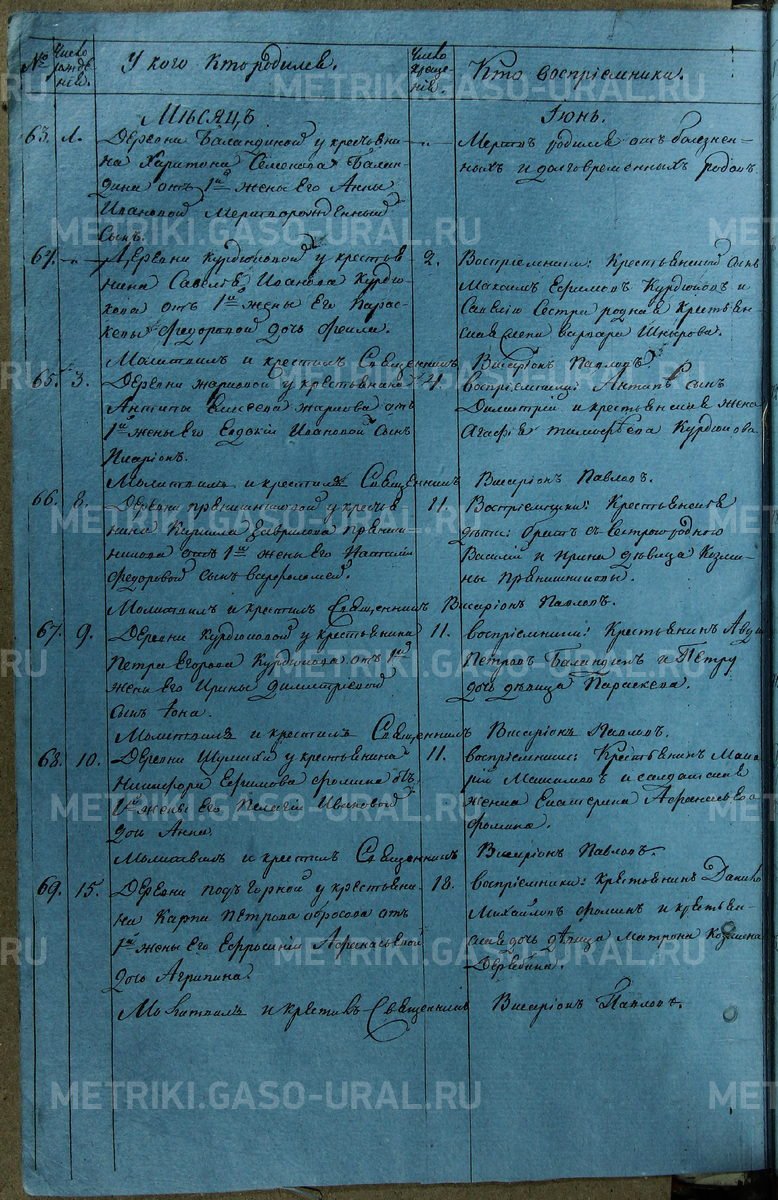 № Число рожденія. У кого кто родился. Число крещенія. Кто воспріемники.
Мѣсяцъ Іюнь.
63. 1. Деревни Баландиной у крестьяни-
на Харитона Семенова Балан-
дина отъ 1й жены Его Анны
Ивановой Мертворожденный
Сынъ.
Мертвъ родился отъ болезнен-
ныхъ и долговременныхъ родовъ.
64. Деревни Курдюковой у крестья-
нина Савелія Иванова Курдю-
кова отъ 1й жены Его Парас-
кевы Федоровой дочь
2. Воспріемники: Крестьянскій сынъ
Максимъ Ефимовъ Курдюковъ и
Савелію Сестра родная Крестьян-
Варвара
Молитвилъ и крестилъ Священникъ Висаріонъ Павловъ.
65. 3. Деревни Жариковой у крестьянина
Антипы Елисеева отъ
1й жены Его Евдокіи Ивановой Сынъ
Иларіонъ.
4. воспріемники: Антипъ сынъ
Димитрій и крестьянская жена
Агафія Тимофѣева Курдюкова
Молитвилъ и крестилъ Священникъ Висаріонъ Павловъ.
66. 8. Деревни Пряничниковой у крестья-
нина Кирила Гаврилова Прянич-
никова отъ 1й жены Его Наталіи
Федоровой Сынъ Варфоломей.
11. Воспріемники: Крестьянскія
дѣти: братъ съ сестрою родною
Василій и Ирина дѣвица Козми-
ны Пряничниковы.
Молитвилъ и крестилъ Священникъ Висаріонъ Павловъ.
67. 9. Деревни Курдюковой у крестьянина
Петра Егорова Курдюкова отъ 1й
жены Его Ирины Димитріевой
Сынъ Іона.
11. воспріемники: Крестьянинъ
Петровъ Баландинъ и Петру
дочь дѣвица Параскева.
Молитвилъ и крестилъ Священникъ Висаріонъ Павловъ.
68. 10. Деревни Шумихи у крестьянина
Никифора Ефимова Фомина отъ
1й жены Его Пелагіи Ивановой
дочь Анна.
11. воспріемники: Крестьянинъ
Максимовъ и солдатская
женка Екатерина Афанасьева
Фомина.
Молитвилъ и крестилъ Священникъ Висаріонъ Павловъ.
69. 15. Деревни Подъгорной у крестьяни-
на Карпа Петрова Обросова отъ
1й жены Его Ефросиніи Афанасьевой
дочь Агрипина.
18. воспріемники: крестьянинъ Данило
Михайловъ Фоминъ и крестьян-
ская дочь дѣвица Матрона Козмина
Дерябина.
Молитвилъ и крестилъ Священникъ Висаріонъ Павловъ.
METRIKI.GASO-URAL.RU